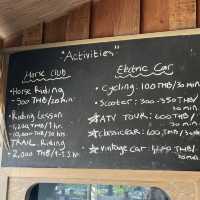 "Activities"
Horse Club
• Horse Riding
- 300 THB/20 min.
• Riding Lesson
- 1,200 THB/1 hr.
- 10,000 THB/10 hr.
• TRAIL Riding
- 2,000 THB/1-1.5 hr.
Electric Car
• Cycling: 100 THB/30 min.
• Scooter: 300-350 THB/
30 min.
ATV TOUR: 600 THB/
30 min
classic car: 600 THB/
vintage car:
30 min